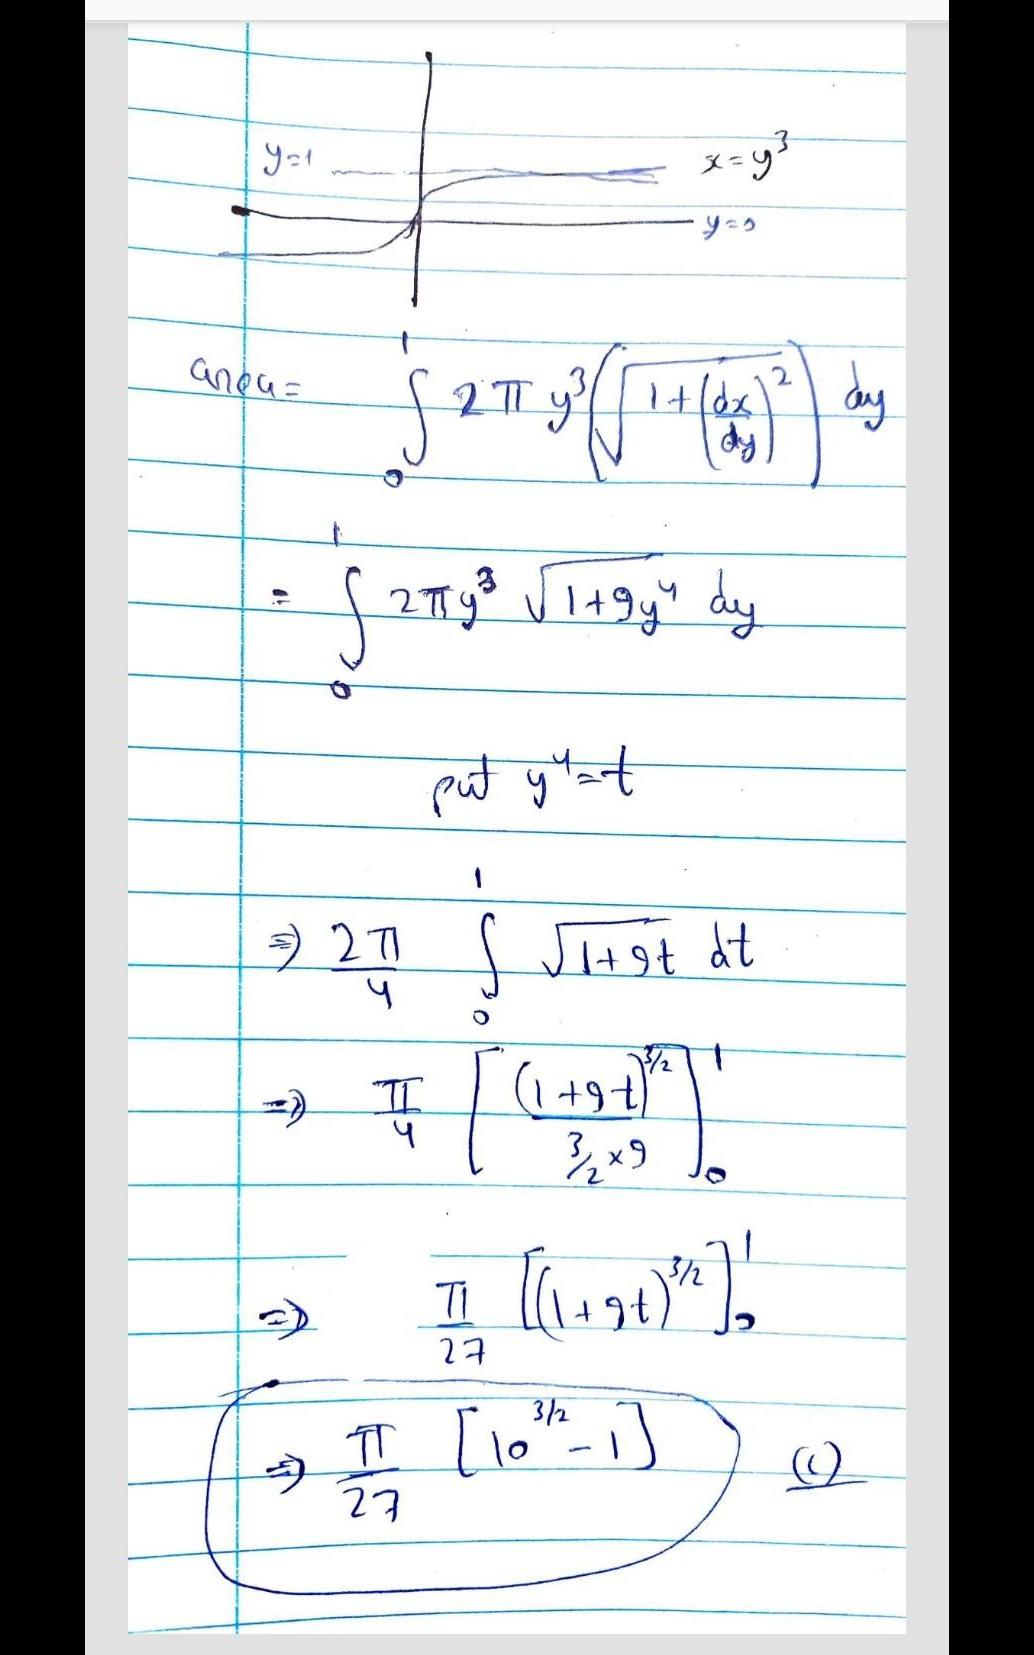 y=1
x=y³
y=0
area = ∫₀¹ 2π y³ (√(1+(dx/dy)²)) dy
= ∫₀¹ 2πy³ √(1+9y⁴) dy
put y⁴=t
⇒ 2π/4 ∫₀¹ √(1+9t) dt
⇒ π/4 [(1+9t)^3/2 / (3/2×9)]₀¹
⇒ π/27 [(1+9t)^3/2]₀¹
⇒ π/27 [10^3/2 - 1] (c)